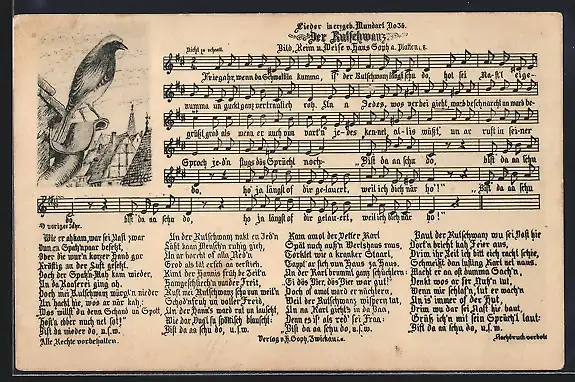 Lieder in erzgeb. Mundart No 36.
Der Rutschwanz
Nicht zu schnell.
Bild, Reim u. Weise v. Hans Soph a. Platten i. E.
Friegahr, wenn da Schwalbla kumma, is' der Rutschwanz längst schu do, hot sei Nastl eige-
numma un guckt ganz vertraulich roh. Un a Jedes, wos verbei gieht, werd beschnarcht un werd be-
grüßt, grod als wenn er auch vun vart'n je-des ken-ne, al-lis wüßt, un ar ruft in sei-ner
Sproch jed'n flugs dös Sprüchl noch: „Bist da aa schu do, bist da aa schu
do, ho ja längst of dir gelauert, weil ich dich när ho'!" „Bist da aa schu
do, bist da aa schu do, ho ja längst of dir gelau-ert, weil ich dich när ho'!
Wie er ahkam, war sei Nast zwar
Vun en Spatznpaar besetzt,
Ober die wur'n korzer Hand gar
Kräftig an der Luft gesetzt.
Doch der Spatzn-Mah kam wieder,
Un da Kaferei ging ah.
Doch mei Rutschwanz würgt'n nieder
Un hackt hie, wos ar när kah:
„Was willst' du denn Schand un Spott,
Host's eber noch net sot!"
Bist da wieder do, u.s.w.
Un der Rutschwanz nukt en Jed'n
Läßt kaan Menschn ruhig zieh,
Un ar horcht of alle Red'n
Grod als tät ersch aa versteih.
Kimt der Hannis früh be Zeit'n
Hamgeschlichn va nder Freit,
Ruft mei Rutschwanz schu van weit'n
Schodnfruh un voller Freid,
Un der Hans werd rut un lauscht,
Wie dar Vugl sa spöttisch plauscht:
Bist da aa schu do, u.s.w.
Kam amol der Vetter Karl
Spät nuch auß'n Wertshaus raus,
Torklet wie a kranker Staarl,
Tappt' sa sich vun Haus za Haus.
Un der Karl brumml ganz schüchtern:
„Bi dös Bier, dös Bier war gut!"
Doch of amol werd er nüchtern,
Weil der Rutschwanz wispern tut,
Un na Karl gieht's in da Baa,
Denn es is' als red' sei Fraa:
Bist da aa schu do, u.s.w.
Baut der Rutschwanz wu sei Nast hie
Dort'n bricht kah Feier aus,
Drim, ihr Leit ich bitt eich racht schie,
Schmeißt dan lustig Karl net naus.
Macht er aa oft dumma Sach'n,
Denkt wos er ser Nutz'n tut,
Wenn mir schlaf'n, tut er wach'n
Un is' immer of der Hut,
Drim wu dar sei Nast hie baut,
Grüß ich'n mit sen Sprüch'l laut:
Bist da aa schu do, u.s.w.
Alle Rechte vorbehalten.
Verlag v. H. Soph, Zwickau i. S.
Nachdruck verboten